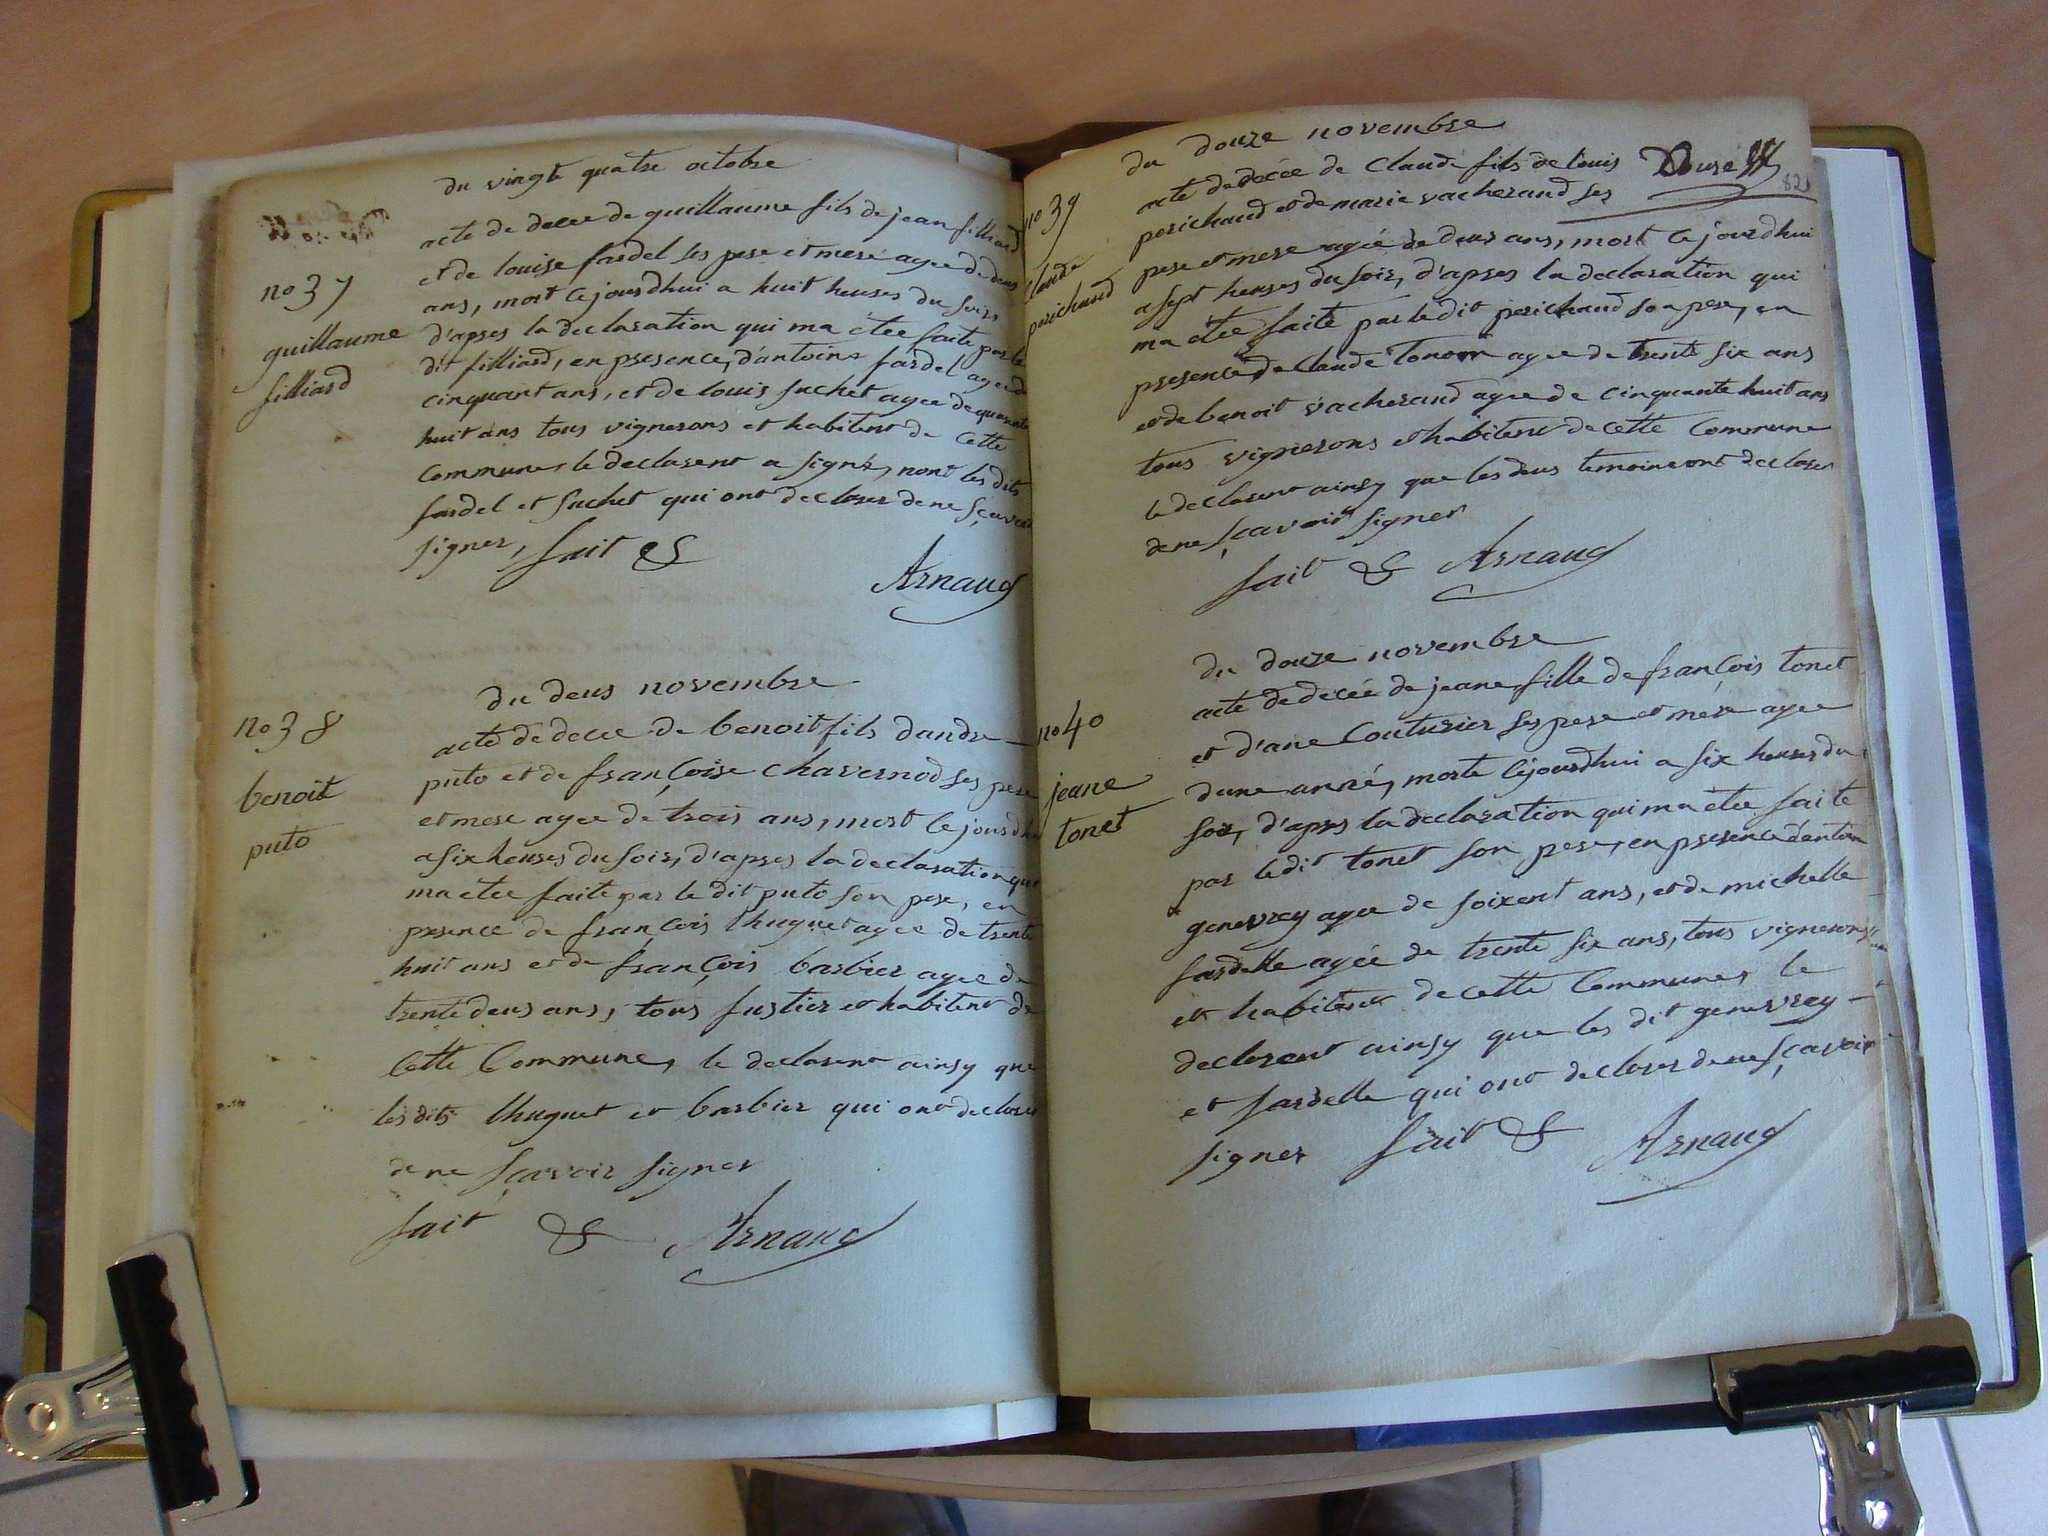 du vingt quatre octobre
no 37
guillaume
filliard
acte de decee de guillaume fils de jean filliard
et de louise fardel ses pere et mere agee de deus
ans, mort cejourdhui a huit heures du soire
d'apres la declaration qui ma étee faite par le
dit filliard, en presence, d'antoine fardel agee de
cinquant ans, et de louis suchet agee de quarente
huit ans tous vignerons et habitent de cette
commune, le declarent a signé, nont les dits
fardel et suchet qui ont declarer de ne sçavoir
signer, fait &
Arnaud
du deus novembre
no 38
benoit
puto
acte de decee de benoit fils dandre
puto et de françoise chavernod ses pere
et mere agee de trois ans, mort cejourdhui
a six heures du soir, d'apres la declaration qui
ma etee faite par le dit puto son pere, en
presence de françois lhuguet agee de trente
huit ans et de françois barbier agee de
trente deus ans, tous fustier et habitent de
cette commune, le declarent ainsy que
les dits lhuguet et barbier qui ont declarer
de ne sçavoir signer
fait & Arnaud
du douze novembre
821
no 39
claude
perichaud
acte de decée de Claude fils de louis
perichaud et de marie vacherand ses
pere et mere agée de deus ans, mort cejourdhui
a sept heures du soir, d'apres la declaration qui
ma etee faite par ledit perichaud son pere, en
presence de Claude agee de trente six ans
et de benoit vacherand agee de cinquante huit ans
tous vignerons et habitent de cette commune
le declarent ainsy que les deus temoins ont declarer
de ne sçavoir signer
fait & Arnaud
du douze novembre
no 40
jeane
tonet
acte de decée de jeane fille de françois tonet
et d'ane Couturier ses pere et mere agee
dune anné, morte cejourdhui a six heures du
soir, d'apres la declaration qui ma etee faite
par ledit tonet son pere, en presence dentoine
genevrey agee de soixent ans, et de michelle
fardelle agée de trente six ans, tous vignerons
et habitent de cette commune, le
declarent ainsy que les dit genevrey
et fardelle qui ont declarer de ne sçavoir
signer fait & Arnaud